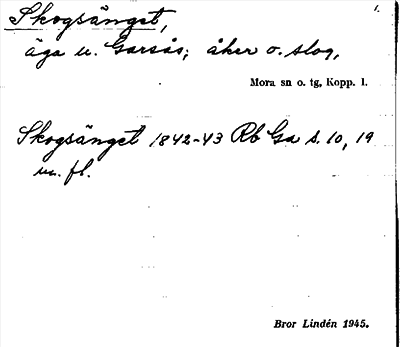 Skogsänget, 1.
äga u. Garsås; åker o. slog,
Mora sn o. tg, Kopp. l.
Skogsänget 1842-43 Rb Ga s. 10, 19
m. fl.
Bror Lindén 1945.